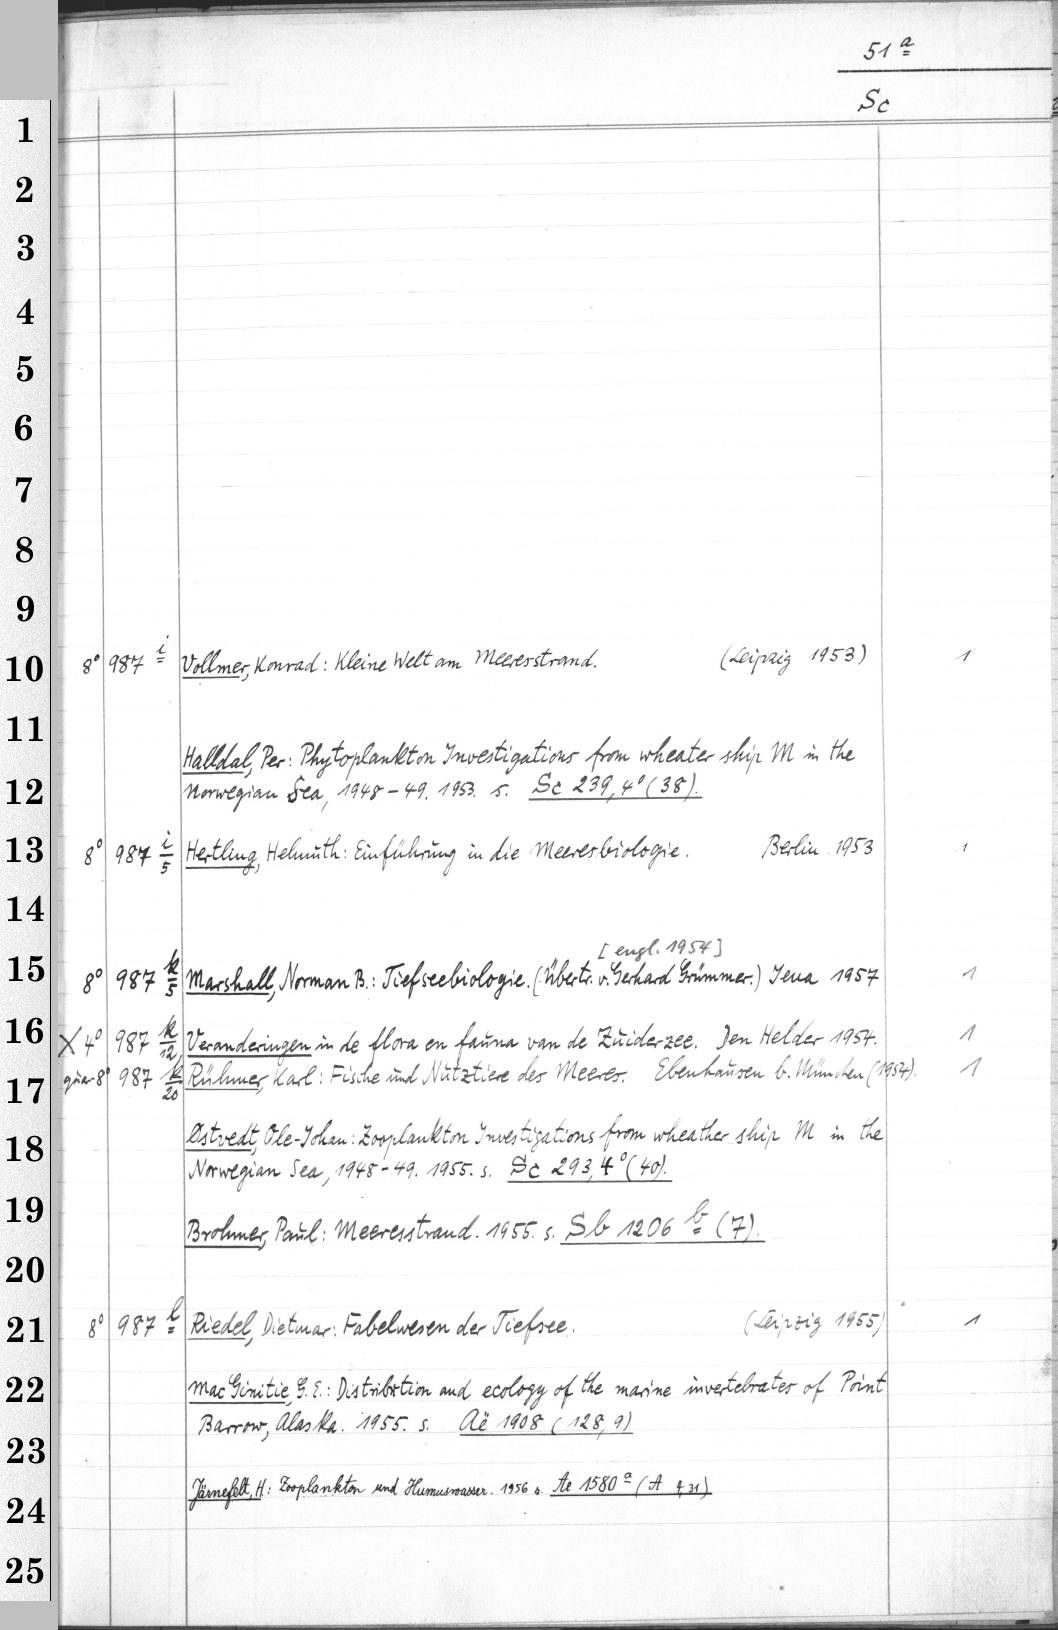 51 a
Sc
1
2
3
4
5
6
7
8
9
10
11
12
13
14
15
16
17
18
19
20
21
22
23
24
25
8° 987 i Vollmer, Konrad: Kleine Welt am Meeresstrand. (Leipzig 1953) 1
Halldal, Per: Phytoplankton Investigations from wheater ship M in the
Norwegian Sea, 1948-49. 1953. s. Sc 239, 4° (38).
8° 987 i/5 Hertling, Helmuth: Einführung in die Meeresbiologie. Berlin 1953 1
[engl. 1954]
8° 987 k/5 Marshall, Norman B.: Tiefseebiologie. (Übertr. v. Gerhard Grümmer.) Jena 1957 1
X 4° 987 k/12 Veranderingen in de flora en fauna van de Zuiderzee. Den Helder 1954. 1
quer-8° 987 k/20 Rühmer, Karl: Fische und Nutztiere des Meeres. Ebenhausen b. München (1954). 1
Østvedt, Ole-Johan: Zooplankton Investigations from wheather ship M in the
Norwegian Sea, 1948-49. 1955. s. Sc 293, 4° (40).
Brohmer, Paul: Meeresstrand. 1955. s. Sb 1206 b (7).
8° 987 l Riedel, Dietmar: Fabelwesen der Tiefsee. (Leipzig 1955) 1
MacGinitie, G. E.: Distribution and ecology of the marine invertebrates of Point
Barrow, Alaska. 1955. s. Aë 1908 (128,9)
Järnefelt, H: Zooplankton und Humuswasser. 1956 s. Ae 1580 a (A 4,31)